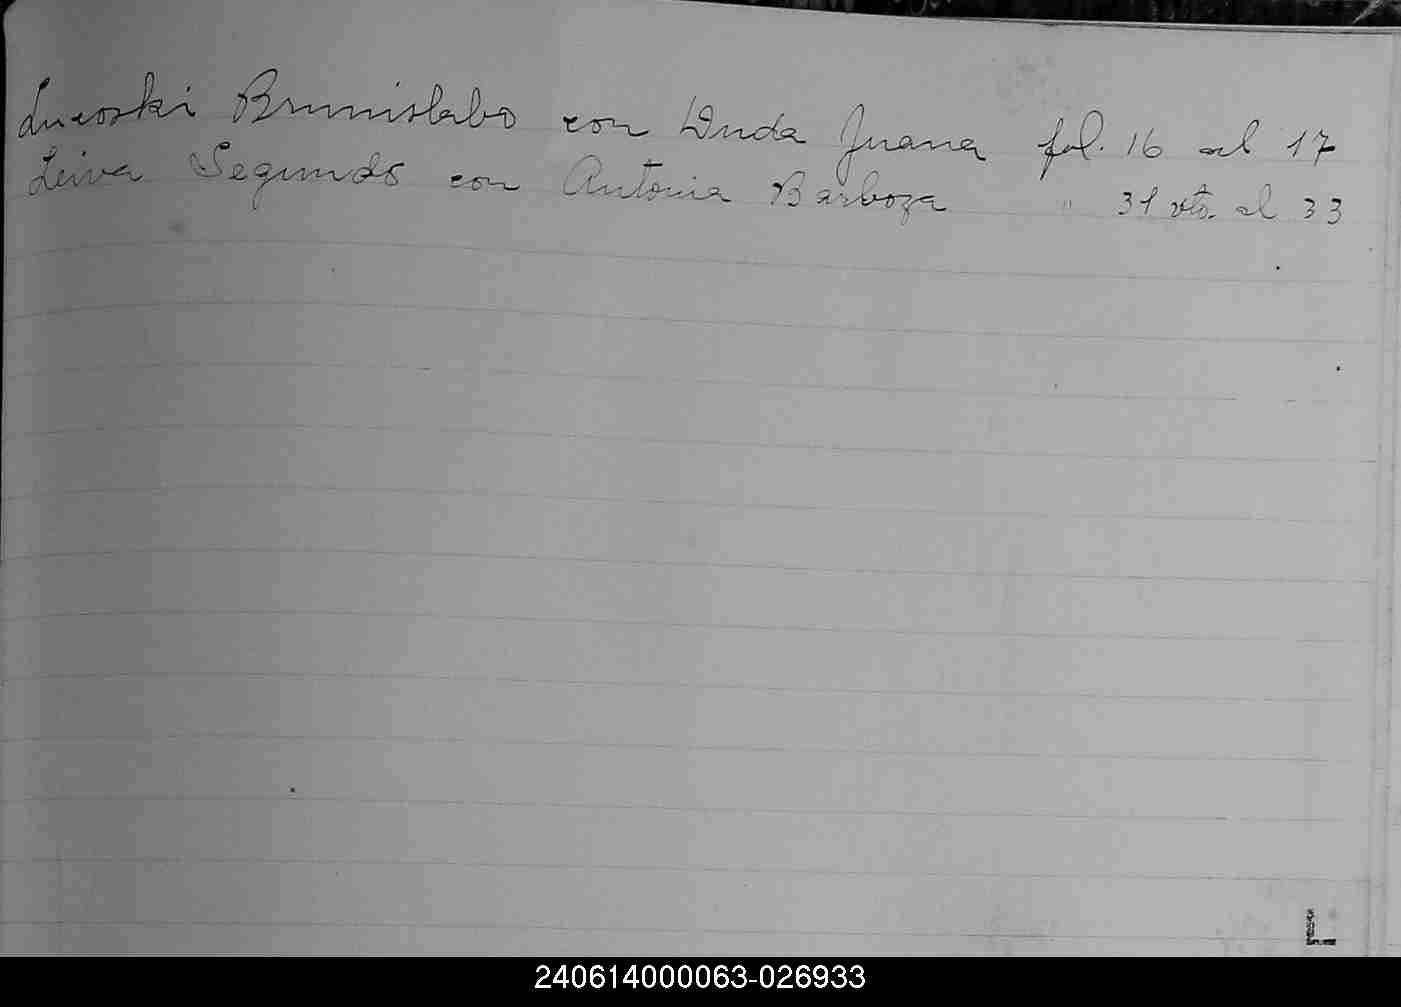 Lucoski Brunislabo con Duda Juana fol. 16 al 17
Leiva Segundo con Antonia Barboza " 31 vto. al 33
L
240614000063-026933